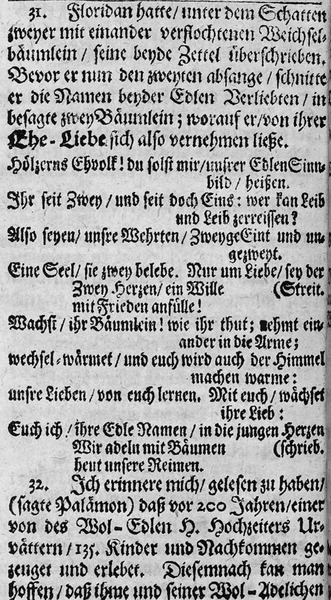 31. Floridan hatte/ unter dem Schatten
zweyer mit einander verflochtenen Weichsel-
bäumlein/ seine beyde Zettel überschrieben.
Bevor er nun den zweyten absange/ schnitte
er die Namen beyder Edlen Verliebten/ in
besagte zwey Bäumlein; worauf er/ von ihrer
Ehe-Liebe sich also vernehmen ließe.
Hölzerns Ehvolk! du solst mir/ unsrer Edlen Sinn-
bild/ heißen.
Ihr seit Zwey/ und seit doch Eins: wer kan Leib
und Leib zerreissen?
Also seyen/ unsre Wehrten/ Zweyge Eint und un-
gezweyt.
Eine Seel/ sie zwey belebe. Nur um Liebe/ sey der
Zwey Herzen/ ein Wille (Streit.
mit Frieden anfülle!
Wachst/ ihr Bäumlein! wie ihr thut; nehmt ein-
ander in die Arme;
wechsel-wärmet/ und euch wird auch der Himmel
machen warme:
unsre Lieben/ von euch lernen. Mit euch/ wächset
ihre Lieb:
Euch ich/ ihre Edle Namen/ in die jungen Herzen
Wir adeln mit Bäumen (schrieb.
heut unsere Reimen.
32. Ich erinnere mich/ gelesen zu haben/
(sagte Palämon) daß vor 200 Jahren/ einer
von des Wol-Edlen H. Hochzeiters Ur-
vättern/ 135. Kinder und Nachkommen ge-
zeuget und erlebet. Diesemnach kan man
hoffen/ daß ihme und seiner Wol-Adelichen